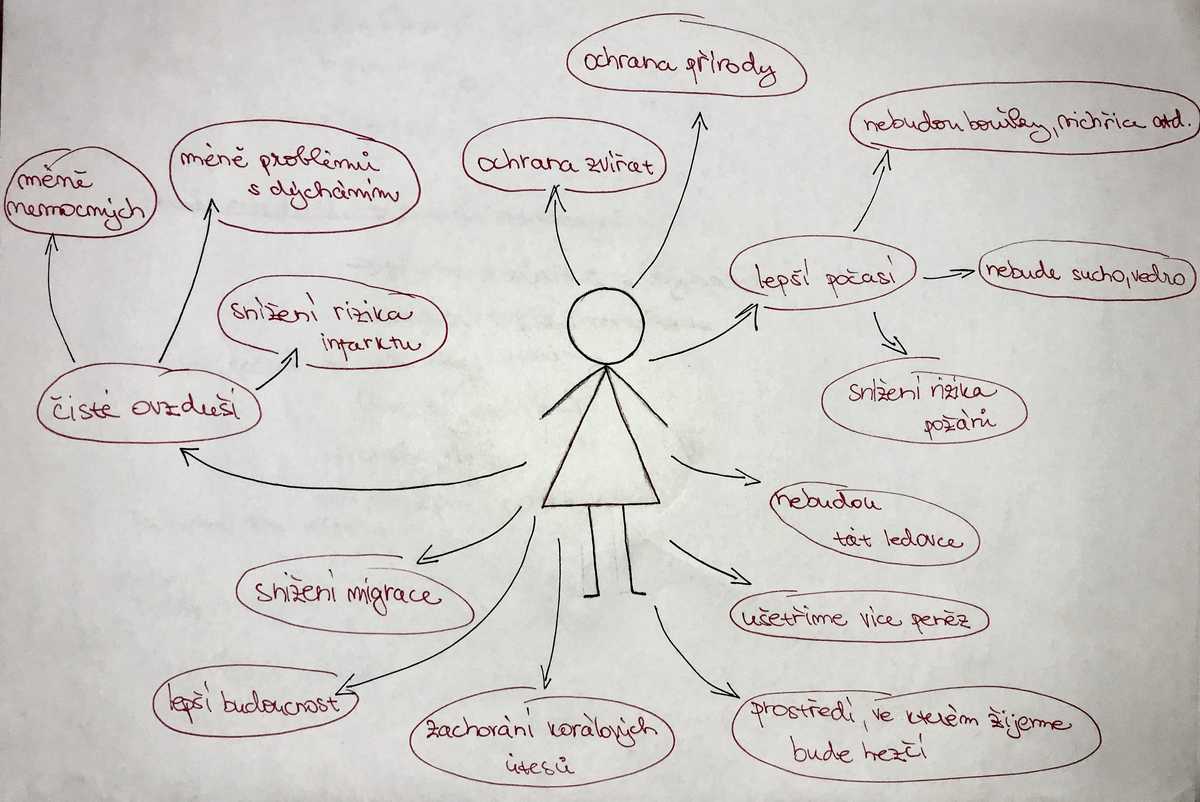 ochrana přírody
nebudou bouřky, vichřice atd.
méně
nemocných
méně problémů
s dýcháním
ochrana zvířat
lepší počasí
nebude sucho, vedro
snížení rizika
infarktu
čisté ovzduší
snížení rizika
požárů
nebudou
tát ledovce
snížení migrace
ušetříme více peněz
lepší budoucnost
zachování korálových
útesů
prostředí, ve kterém žijeme
bude hezčí